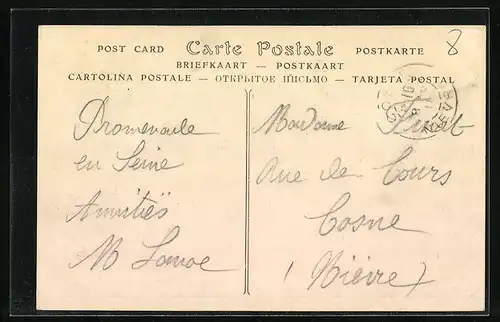 POST CARD Carte Postale POSTKARTE
8
BRIEFKAART — POSTKAART
CARTOLINA POSTALE — ОТКРЫТОЕ ПИСЬМО — TARJETA POSTAL
Promenade
en Seine
Amitiés
M
Madame
Rue de Cours
Cosne
(Nièvre)